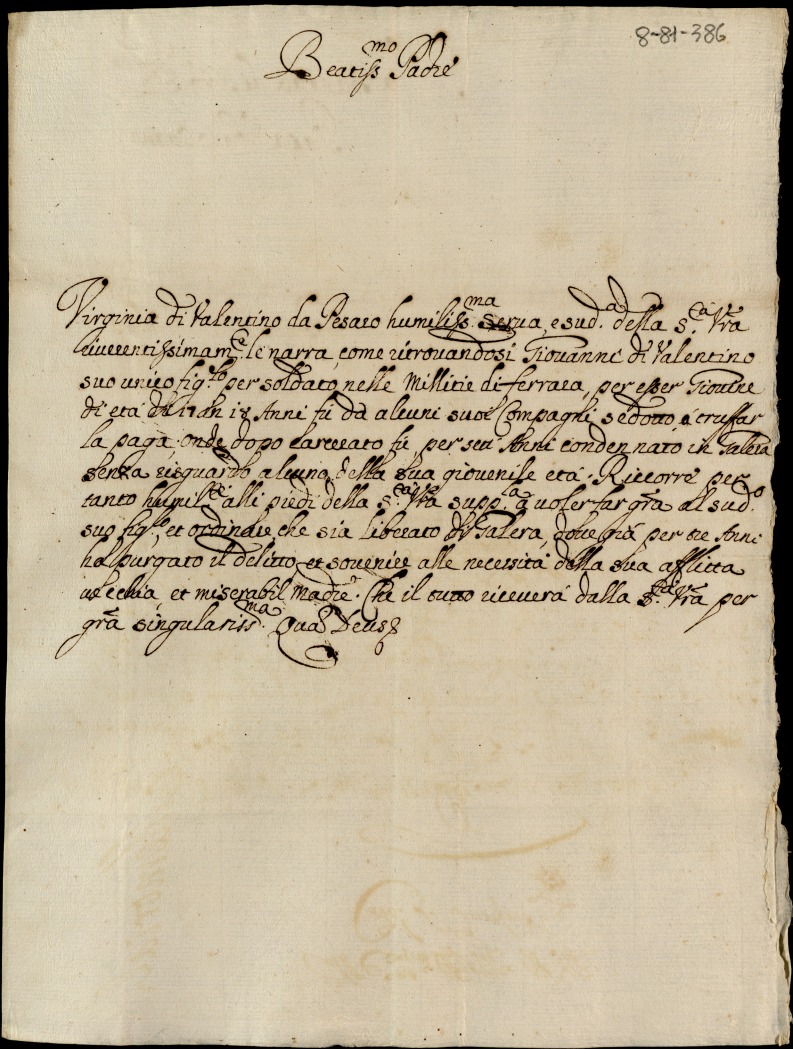 8-81-386
Beatiss.mo Padre
Virginia di Valentino da Pesaro humiliss.ma serva, e sud.a della S.tà Vra
riverentissimam.e le narra, come ritrovandosi Giovanni di Valentino
suo unico fig.lo per soldato nelle Millitie di ferrara, per esser Giovine
di età di 17 in 18 Anni fù da alcuni suoi Compagni sedotto à truffar
la paga onde dopo carcerato fù per sei Anni condennato in Galera
senza risguardo alcuno della sua giovenile età. Riccorre per
tanto humil.te alli piedi della S.tà Vra supp.a à voler far gra al sud.o
suo fig.lo, et ordinare che sia liberato di Galera, dove già per tre Anni
ha purgato il delitto, et sovenire alle necessità della sua afflitta
vecchia, et miserabil Madre. Che il tutto riceverà dalla S.tà Vra per
gra singulariss.ma Quā Deus